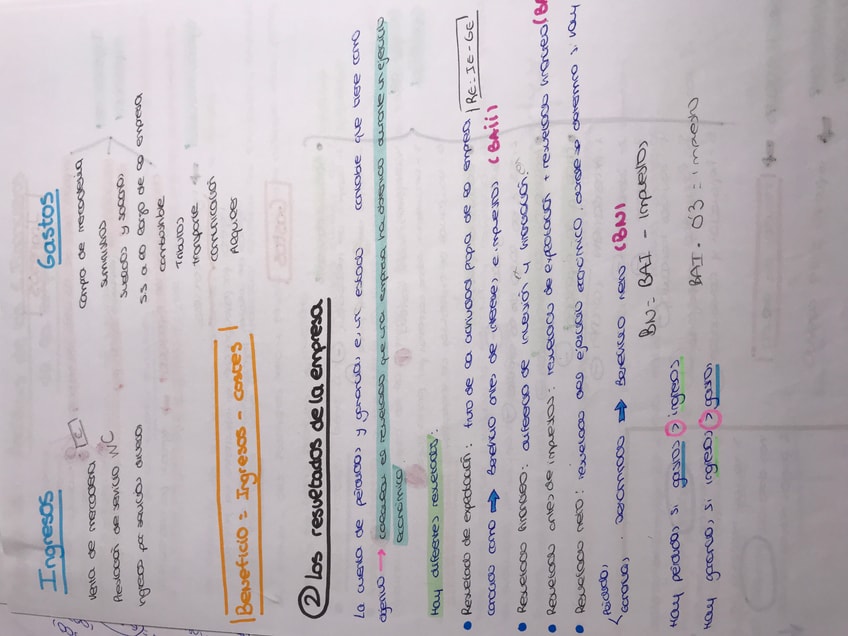 Ingresos
Venta de mercaderia
Prestación de servicio N/C
Ingresos por servicios diversos
Gastos
Compra de mercaderia
Suministros
Sueldos y salarios
S.S a cargo de la empresa
Combustible
Tributos
Transporte
Comunicación
Alquiler
Beneficio = Ingresos - costes
② Los resultados de la empresa
La cuenta de pérdidas y ganancias es un estado contable que tiene como
objetivo → calcular el resultado que una empresa ha obtenido durante un ejercicio
económico
Hay diferentes resultados:
• Resultado de explotación: fruto de la actividad propia de la empresa RE = IE - GE
conocido como → Beneficio antes de intereses e impuestos (BAii)
• Resultado financiero: diferencia de inversión y financiación.
• Resultado antes de impuestos: resultado de explotación + resultado financiero (BA
• Resultado neto: resultado del ejercicio económico, donde se determina si hay
pérdidas,
ganancias, denominado → Beneficio neto (BN)
BN = BAI - Impuestos
Hay pérdidas si gastos > ingresos
BAI · 0'3 = impuesto
Hay ganancias si ingresos > gastos